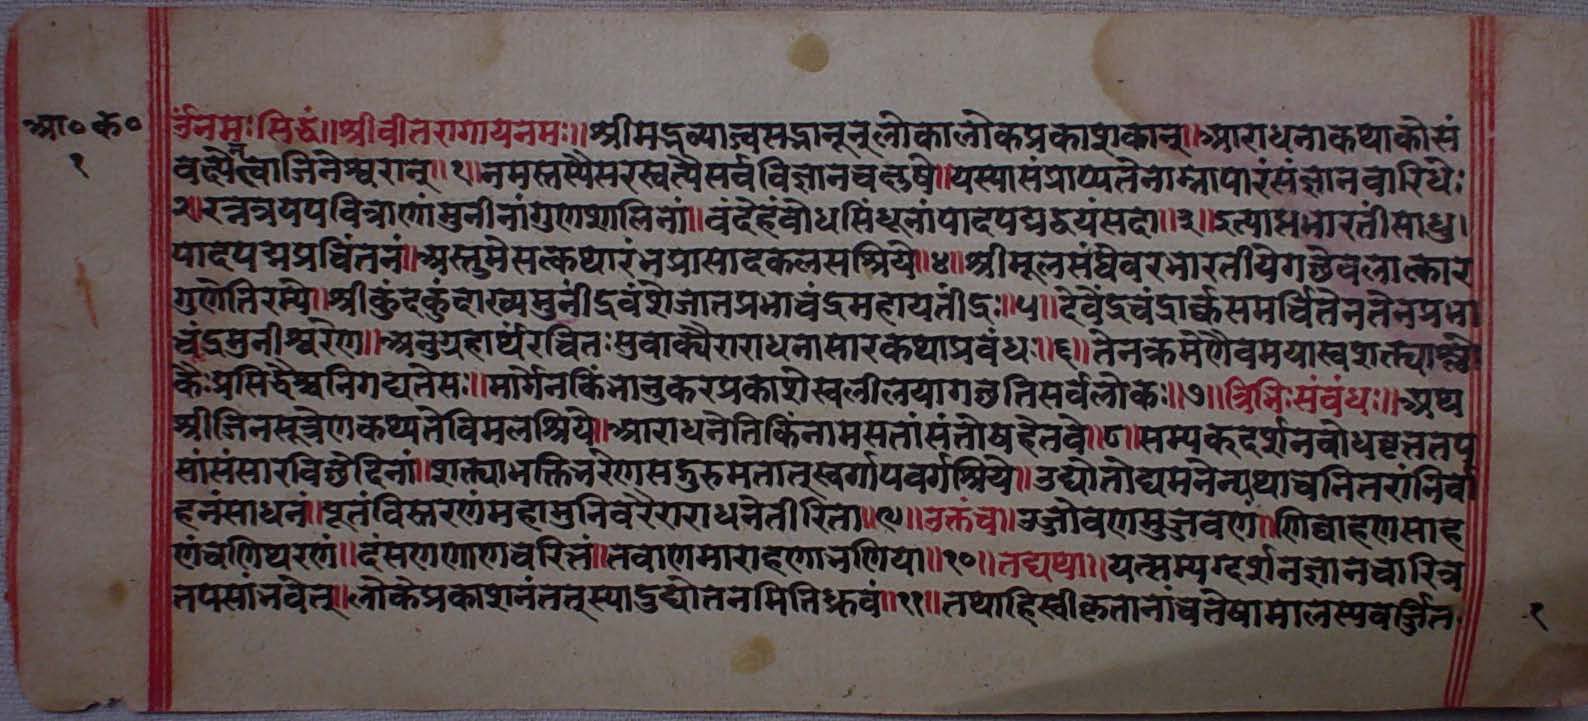 आ० क०
१
ॐनमःसिद्धं॥श्रीवीतरागायनमः॥श्रीमद्भव्याज्वसद्भानून्लोकालोकप्रकाशकान्॥आराधनाकथाकोसं
वक्ष्येनत्वाजिनेश्वरान्॥१॥नमस्तस्यैसरस्वत्यैसर्वविज्ञानचक्षुषे॥यस्यासंप्राप्यतेनाम्नापारंसंज्ञानवारिधेः
२॥रत्नत्रयपवित्राणांमुनीनांगुणशालिनां॥वंदेहंवोधसिंधूनांपादपद्मद्वयंसदा॥३॥इत्याप्तभारतींसाधु।
पादपद्मप्रचिंतनं॥अस्तुमेसत्कथारंभप्रासादकलसश्रिये॥४॥श्रीमूलसंघेवरभारतीयेगछेवलात्कार
गुणेतिरम्ये॥श्रीकुंदकुंदाख्यमुनींद्रवंशेजातप्रभाचंद्रमहायतींद्रः॥५॥देवेंद्रचंद्रार्क्कसमर्चितेनतेनप्रभा
चंद्रमुनीश्वरेण॥अनुग्रहार्थंरचितःसुवाक्यैराराधनासारकथाप्रवंधः॥६॥तेनक्रमेणैवमयास्वशक्त्याश्लो
कैःप्रसिद्धैश्चनिगद्यतेसः॥मार्गेनकिंभानुकरप्रकाशेस्वलीलयागछतिसर्वलोकः॥७॥त्रिभिःसंवंधः॥अथ
श्रीजिनसूत्रेणकथ्यतेविमलश्रिये॥आराधनेतिकिंनामसतांसंतोषहेतवे॥८॥सम्यक्दर्शनवोधवृत्ततप
सांसंसारविछेदिनां॥शक्त्याभक्तिभरेणसद्गुरुमतात्स्वर्गापवर्गश्रिये॥उद्योतोद्यमनेन्यथाचनितरांनिर्वा
हनंसाधनं॥पूतंविस्तरणंमहामुनिवरैराराधनेतीरिता॥९॥उक्तंच॥उज्जोवणमुज्जवण॥णिव्वाहणसाह
णंचणिथरणं॥दंसणणाणचरित्तं॥तवाणमाराहणाभणिया॥१०॥तद्यथा॥यत्सम्यग्दर्शनज्ञानचारित्र
तपसांनवैत्॥लोकेप्रकाशनंतत्स्याडुद्योतनमितिध्रुवं॥११॥तथाहिस्वीकृतानांचतेषामालस्यवर्जित
१